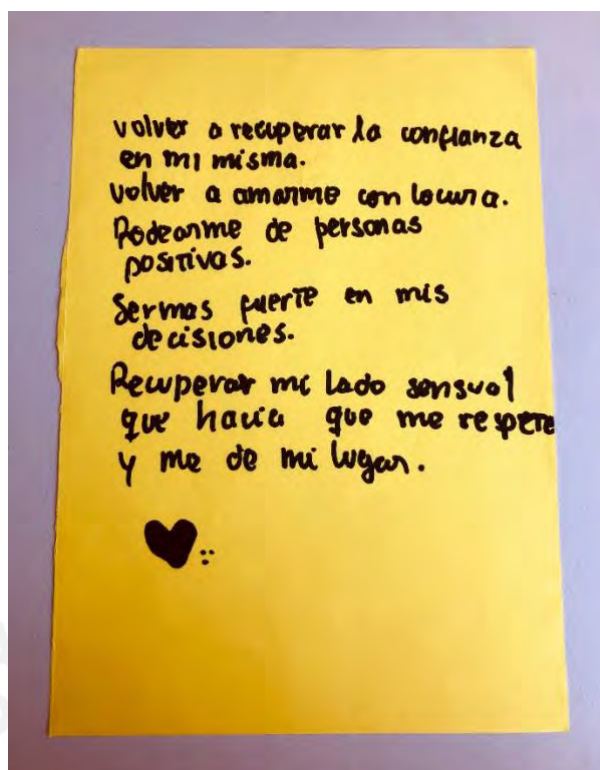 volver a recuperar la confianza
en mi misma.
volver a amarme con locura.
Rodearme de personas
positivas.
Ser mas fuerte en mis
decisiones.
Recuperar mi lado sensual
que hacia que me respete
y me de mi lugar.